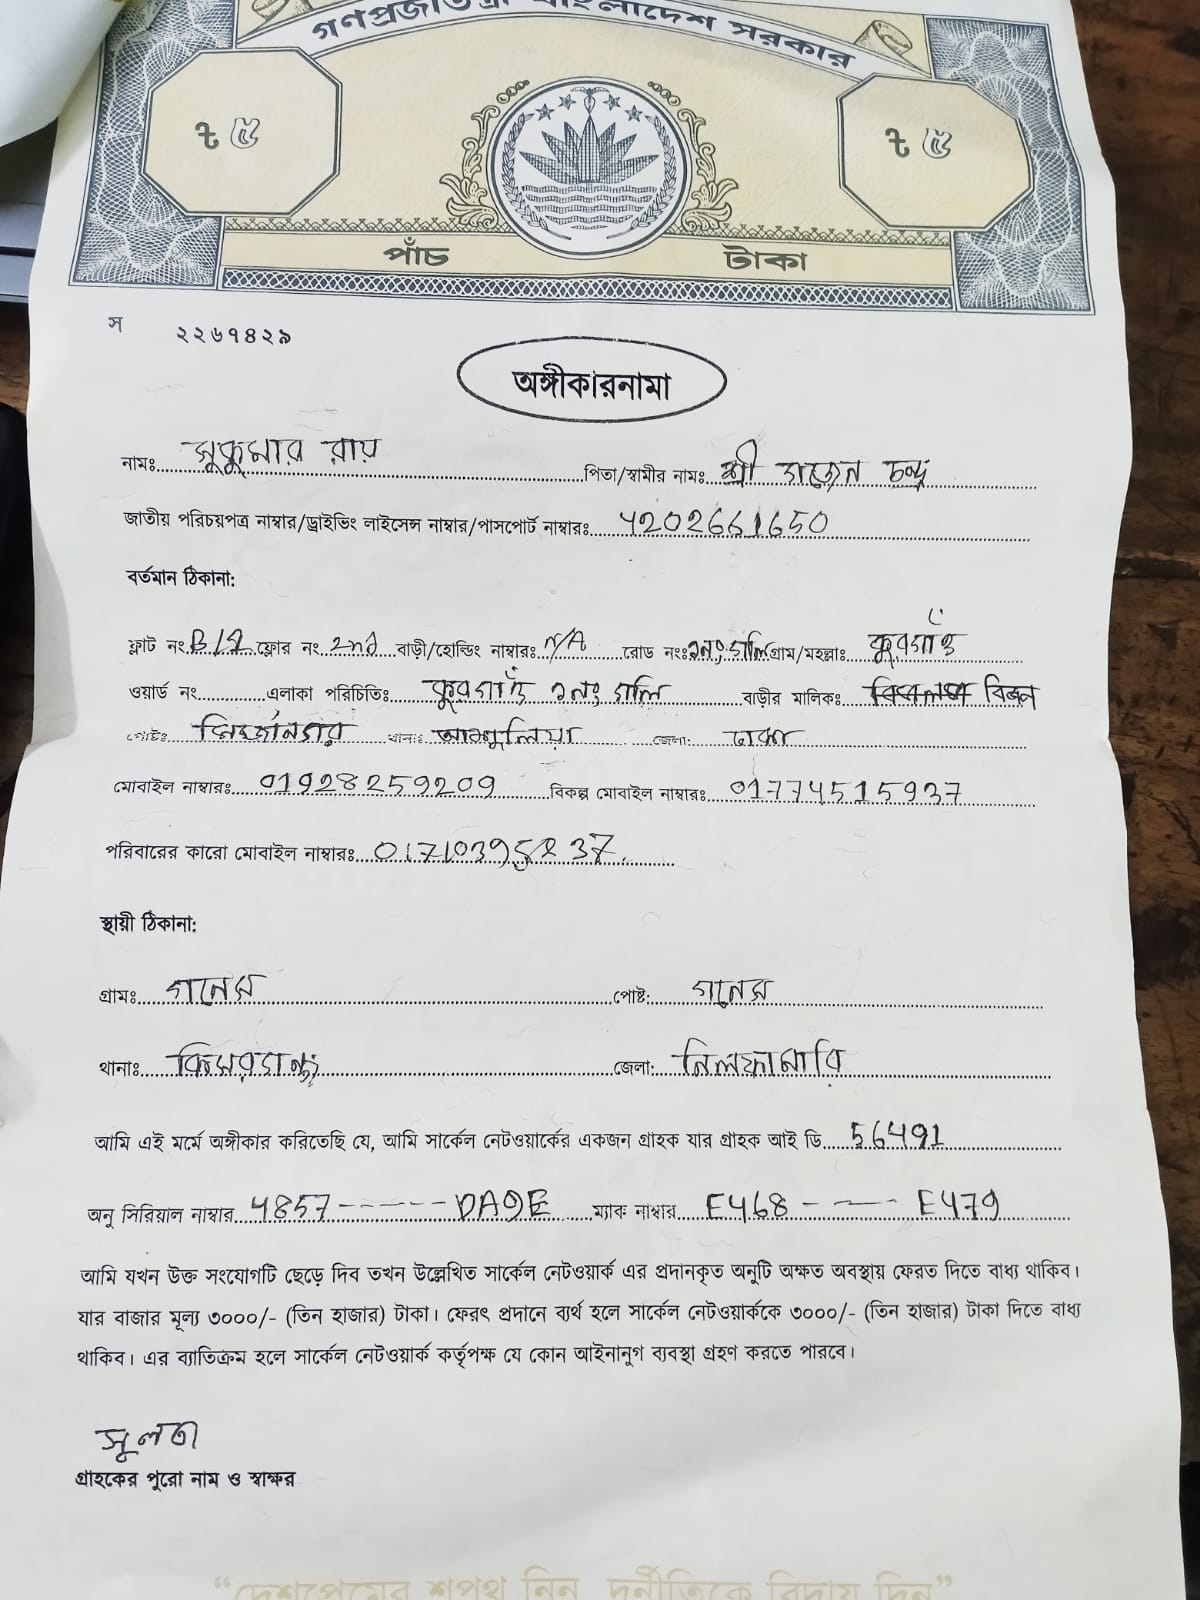 গণপ্রজাতন্ত্রী বাংলাদেশ সরকার
৳ ৫ ৳ ৫
পাঁচ টাকা
স ২২৬৭৪২৯
অঙ্গীকারনামা
নামঃ সুকুমার রায় পিতা/স্বামীর নামঃ শ্রী রাজেন চন্দ্র
জাতীয় পরিচয়পত্র নাম্বার/ড্রাইভিং লাইসেন্স নাম্বার/পাসপোর্ট নাম্বারঃ 4202661650
বর্তমান ঠিকানা:
ফ্লাট নং B/2 ফ্লোর নং 2nd বাড়ী/হোল্ডিং নাম্বারঃ N/A রোড নংঃ ২নং গলি গ্রাম/মহল্লাঃ কুরগাঁও
ওয়ার্ড নং এলাকা পরিচিতিঃ কুরগাঁও ২নং গলি বাড়ীর মালিকঃ
পোষ্টঃ থানাঃ আশুলিয়া জেলাঃ ঢাকা
মোবাইল নাম্বারঃ 01928259209 বিকল্প মোবাইল নাম্বারঃ 01774515937
পরিবারের কারো মোবাইল নাম্বারঃ
স্থায়ী ঠিকানা:
গ্রামঃ গনেস পোষ্ট: গনেস
থানাঃ জেলা: নিলফামারি
আমি এই মর্মে অঙ্গীকার করিতেছি যে, আমি সার্কেল নেটওয়ার্কের একজন গ্রাহক যার গ্রাহক আই ডি 56491
অনু সিরিয়াল নাম্বার 4857------DA9E ম্যাক নাম্বার E468 - — - E479
আমি যখন উক্ত সংযোগটি ছেড়ে দিব তখন উল্লেখিত সার্কেল নেটওয়ার্ক এর প্রদানকৃত অনুটি অক্ষত অবস্থায় ফেরত দিতে বাধ্য থাকিব।
যার বাজার মূল্য ৩০০০/- (তিন হাজার) টাকা। ফেরৎ প্রদানে ব্যর্থ হলে সার্কেল নেটওয়ার্ককে ৩০০০/- (তিন হাজার) টাকা দিতে বাধ্য
থাকিব। এর ব্যাতিক্রম হলে সার্কেল নেটওয়ার্ক কর্তৃপক্ষ যে কোন আইনানুগ ব্যবস্থা গ্রহণ করতে পারবে।
সুলতা
গ্রাহকের পুরো নাম ও স্বাক্ষর
“দেশপ্রেমের শপথ নিন দুর্নীতিকে বিদায় দিন”